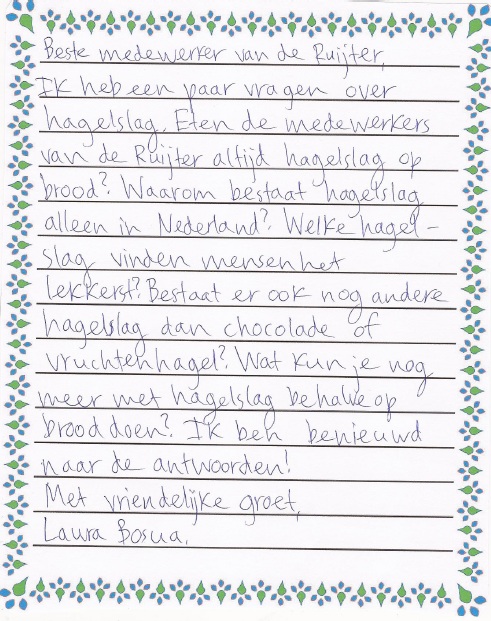 Beste medewerker van de Ruijter,
Ik heb een paar vragen over
hagelslag. Eten de medewerkers
van de Ruijter altijd hagelslag op
brood? Waarom bestaat hagelslag
alleen in Nederland? Welke hagel-
slag vinden mensen het
lekkerst? Bestaat er ook nog andere
hagelslag dan chocolade of
vruchtenhagel? Wat kun je nog
meer met hagelslag behalve op
brood doen? Ik ben benieuwd
naar de antwoorden!
Met vriendelijke groet,
Laura Bosua.